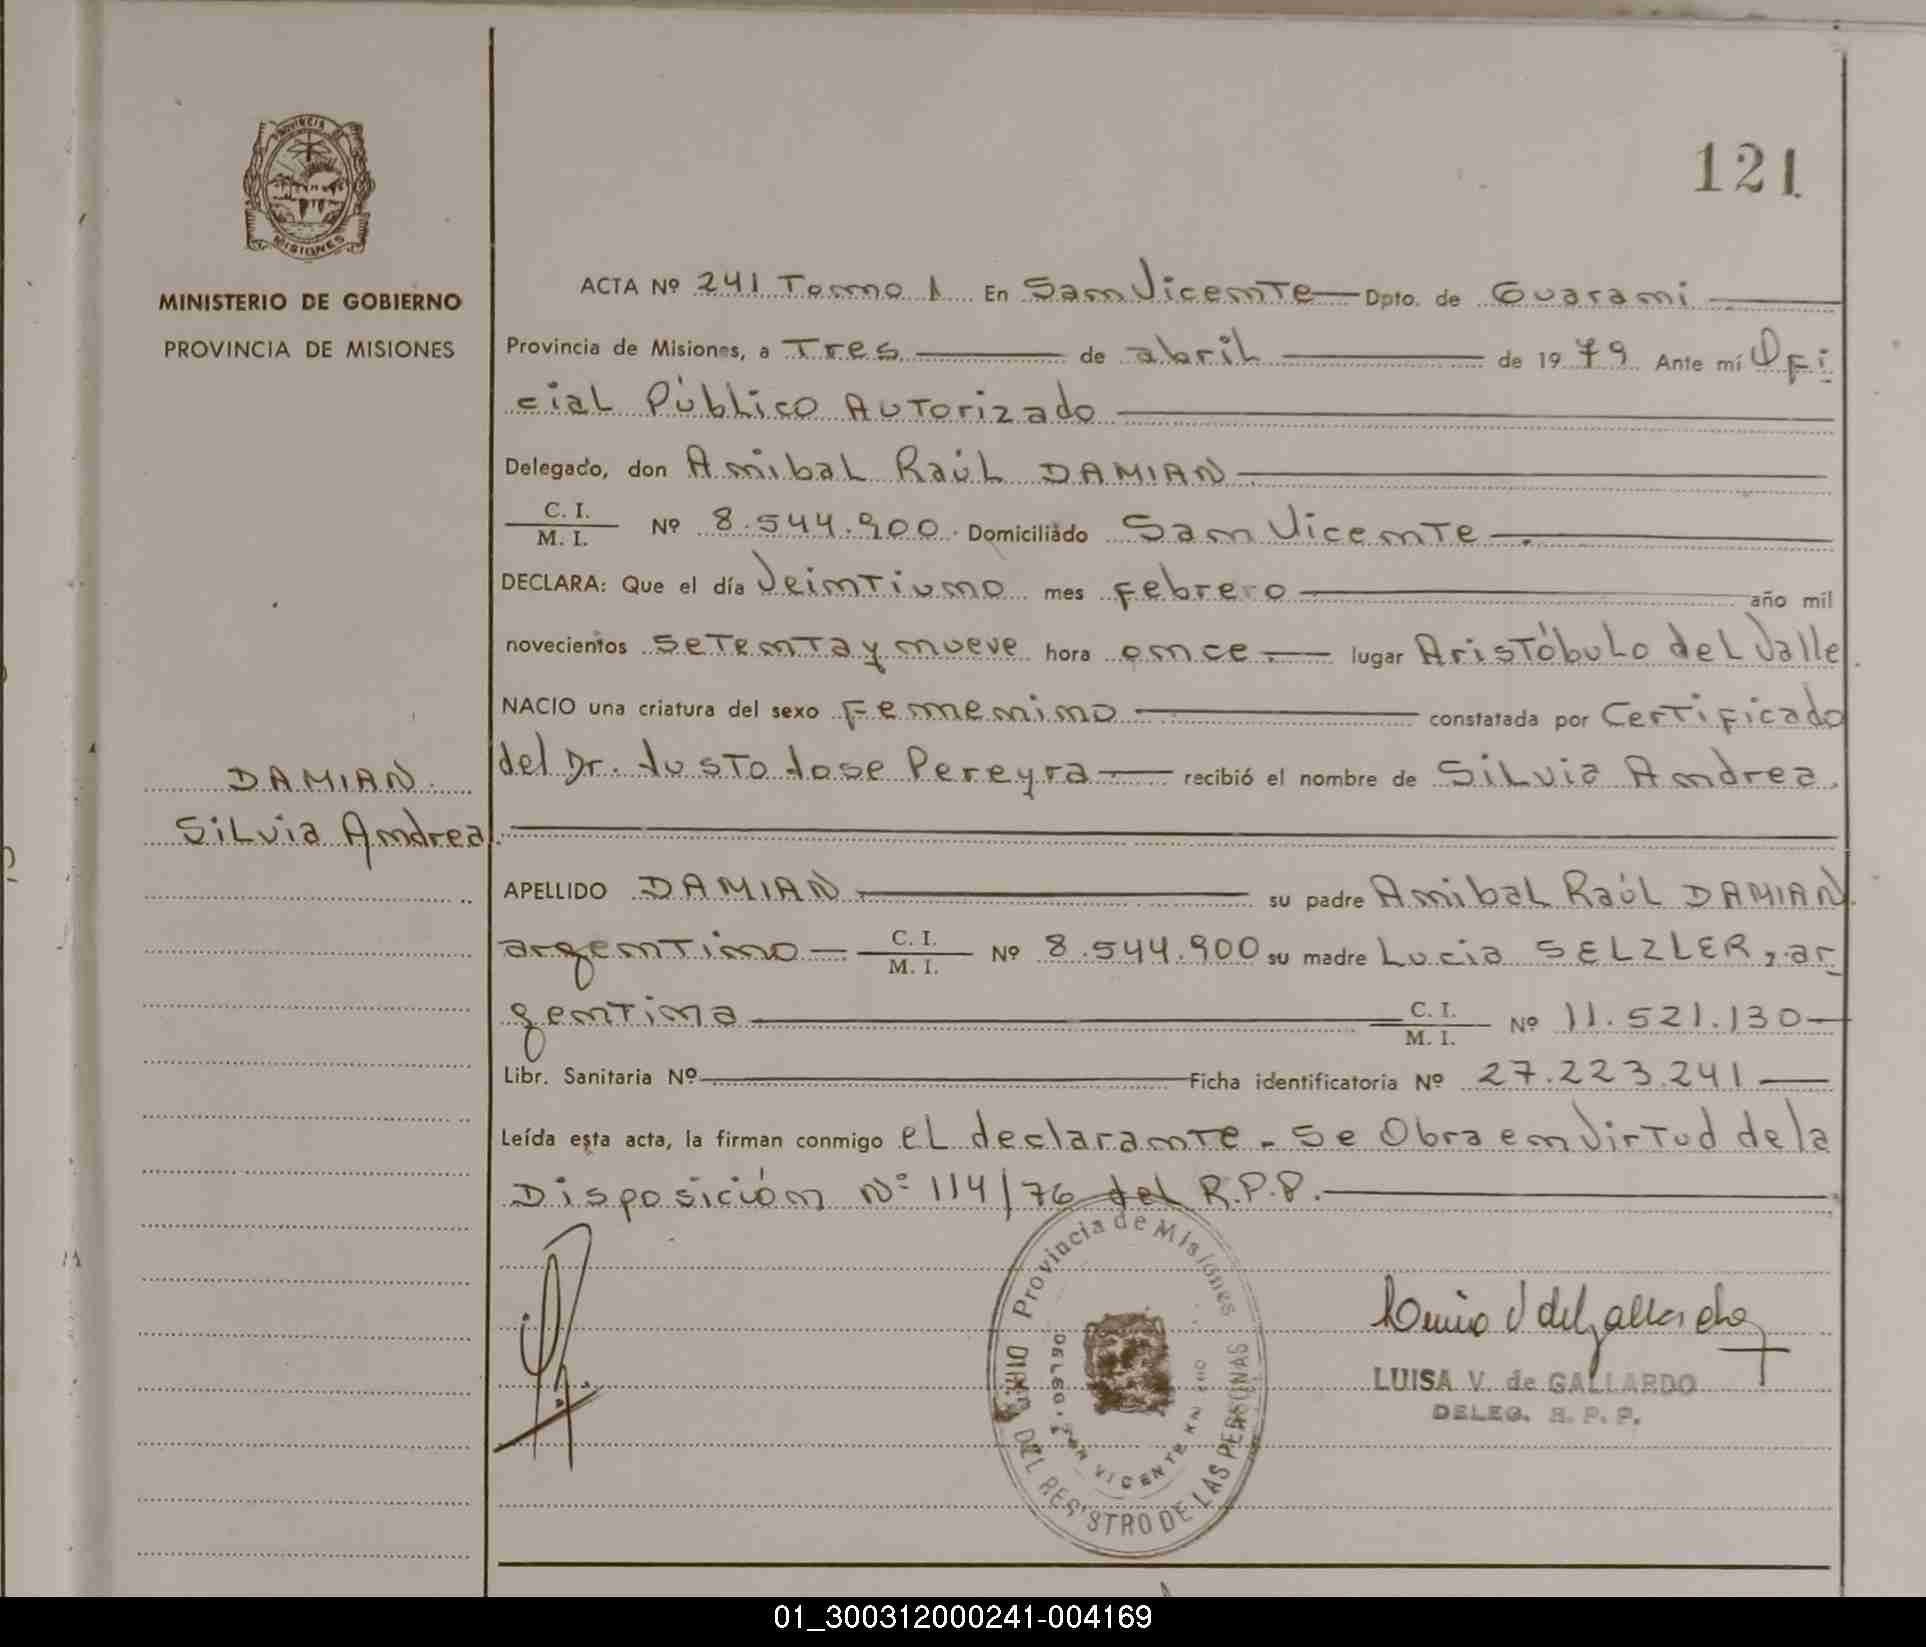 121
PROVINCIA DE
MISIONES
MINISTERIO DE GOBIERNO
PROVINCIA DE MISIONES
ACTA Nº 241 Tomo 1 En San Vicente Dpto. de Guarani
Provincia de Misiones, a Tres de abril de 1979 Ante mí Ofi
cial Público Autorizado
Delegado, don Anibal Raúl DAMIAN
C. I.
M. I. Nº 8.544.900. Domiciliado San Vicente
DECLARA: Que el día Veintiuno mes Febrero año mil
novecientos Setenta y nueve hora once lugar Aristóbulo del Valle
NACIO una criatura del sexo Femenino constatada por Certificado
del Dr. Justo Jose Pereyra recibió el nombre de Silvia Andrea.
DAMIAN
Silvia Andrea
APELLIDO DAMIAN su padre Anibal Raúl DAMIAN
argentino C. I.
M. I. Nº 8.544.900 su madre Lucia SELZLER, ar
gentina C. I.
M. I. Nº 11.521.130
Libr. Sanitaria Nº Ficha identificatoria Nº 27.223.241
Leída esta acta, la firman conmigo el declarante. Se Obra en Virtud de la
Disposición Nº 114/76 del R.P.P.
Provincia de Misiones
DIR. DEL REGISTRO DE LAS PERSONAS
DELEG. SAN VICENTE
LUISA V. de GALLARDO
DELEG. R. P. P.
01_300312000241-004169